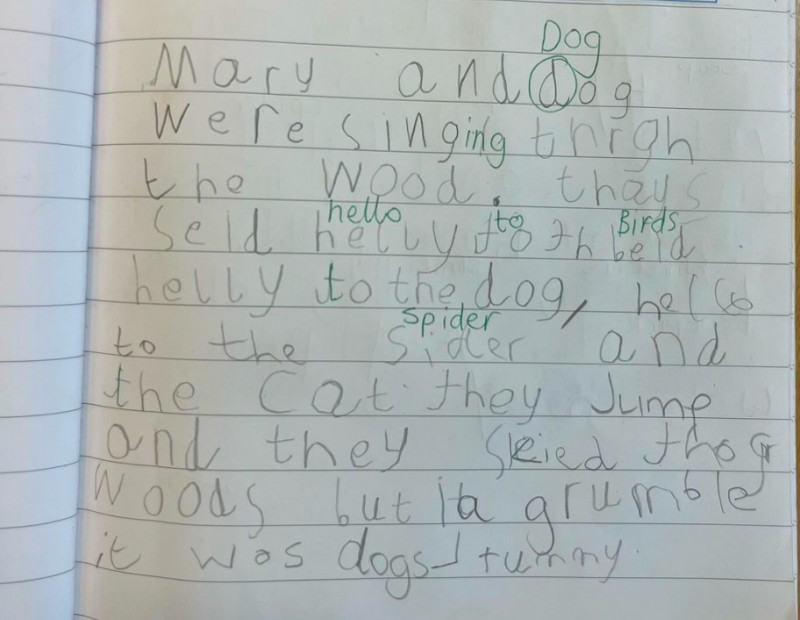 Dog
Mary and dog
Were singing thrgh
the wood. thays
hello to Birds
Seid helly to th beld.
helly to the dog, hello
spider
to the Sider and
the Cat. they Jump
and they skied thogr
Woods but ita grumble
it was dogs tummy.